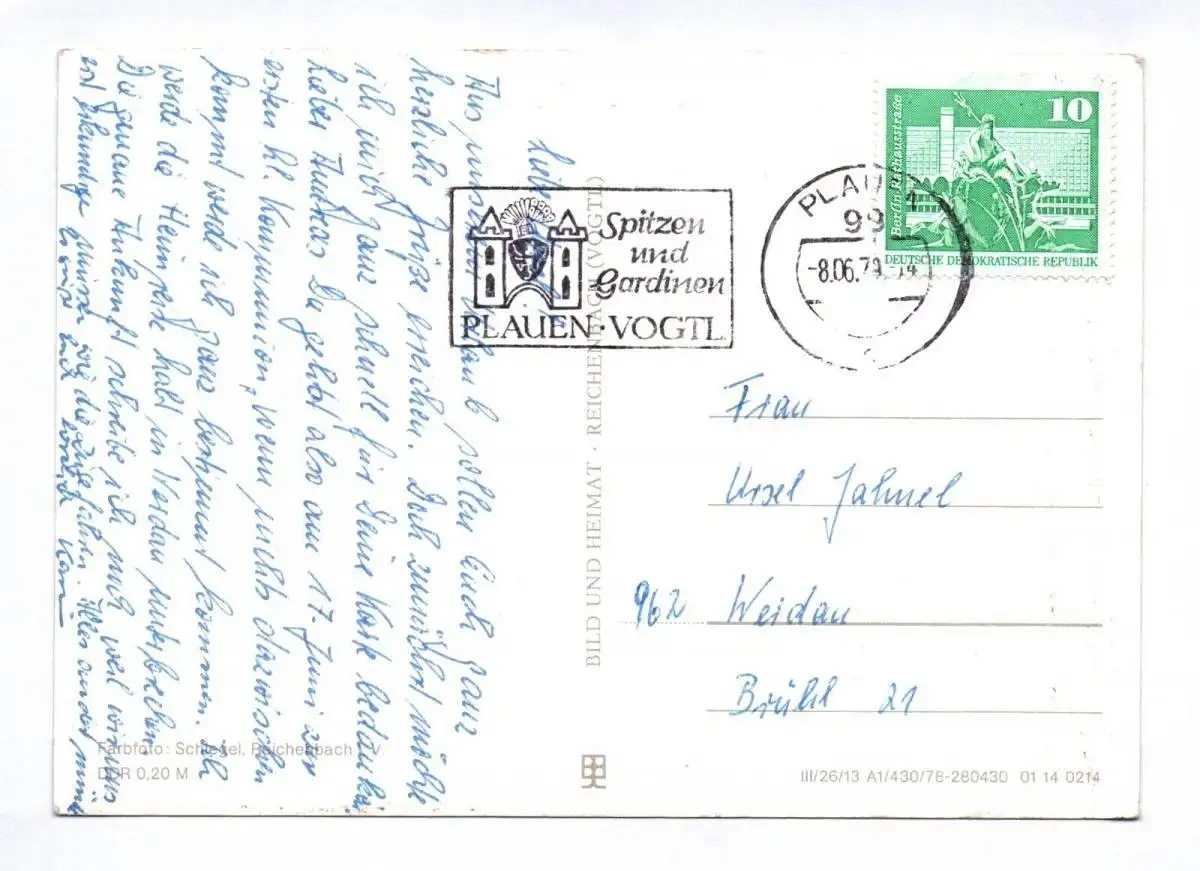 Aus unserem Urlaub sollen Euch ganz
herzliche Grüße erreichen. Doch zunächst möchte
ich mich ganz schnell für Deine Karte bedanken
Lieber Du gehst also am 17. Juni zur
ersten hl. Kommunion, wenn nichts dazwischen
kommt werde ich ganz bestimmt kommen. Ich
werde die Heimreise halt in Werdau unterbrechen
Die genaue Ankunft schreibe ich noch weil wir uns
erst erkundigen müssen wie die Züge fahren. Alles andere
Spitzen
und
Gardinen
PLAUEN · VOGTL
PLAUEN 1
99
-8.06.79-14
Berlin Rathausstraße
10
DEUTSCHE DEMOKRATISCHE REPUBLIK
BILD UND HEIMAT · REICHENBACH (VOGTL)
Frau
Ursel Jahnel
962 Werdau
Brühl 21
Farbfoto: Schlegel, Reichenbach i. V.
DDR 0,20 M
III/26/13 A1/430/78-280430 01 14 0214